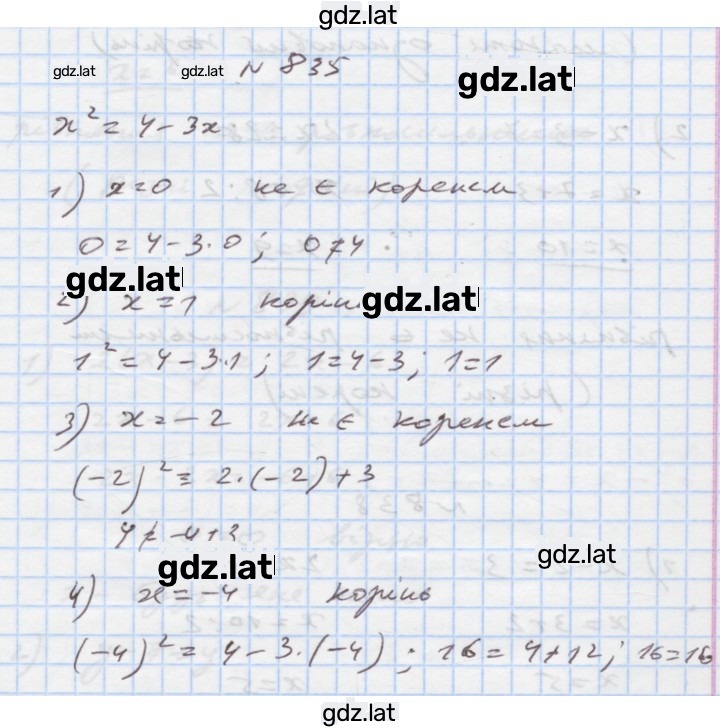 gdz.lat
gdz.lat gdz.lat N 835 gdz.lat
x² = 4 - 3x
1) x = 0 не є коренем
0 = 4 - 3·0; 0 ≠ 4
gdz.lat
2) x = 1 корінь gdz.lat
1² = 4 - 3·1; 1 = 4 - 3; 1 = 1
3) x = -2 не є коренем
(-2)² = 2·(-2) + 3
4 ≠ -4 + 3
gdz.lat gdz.lat
4) x = -4 корінь
(-4)² = 4 - 3·(-4); 16 = 4 + 12; 16 = 16
gdz.lat